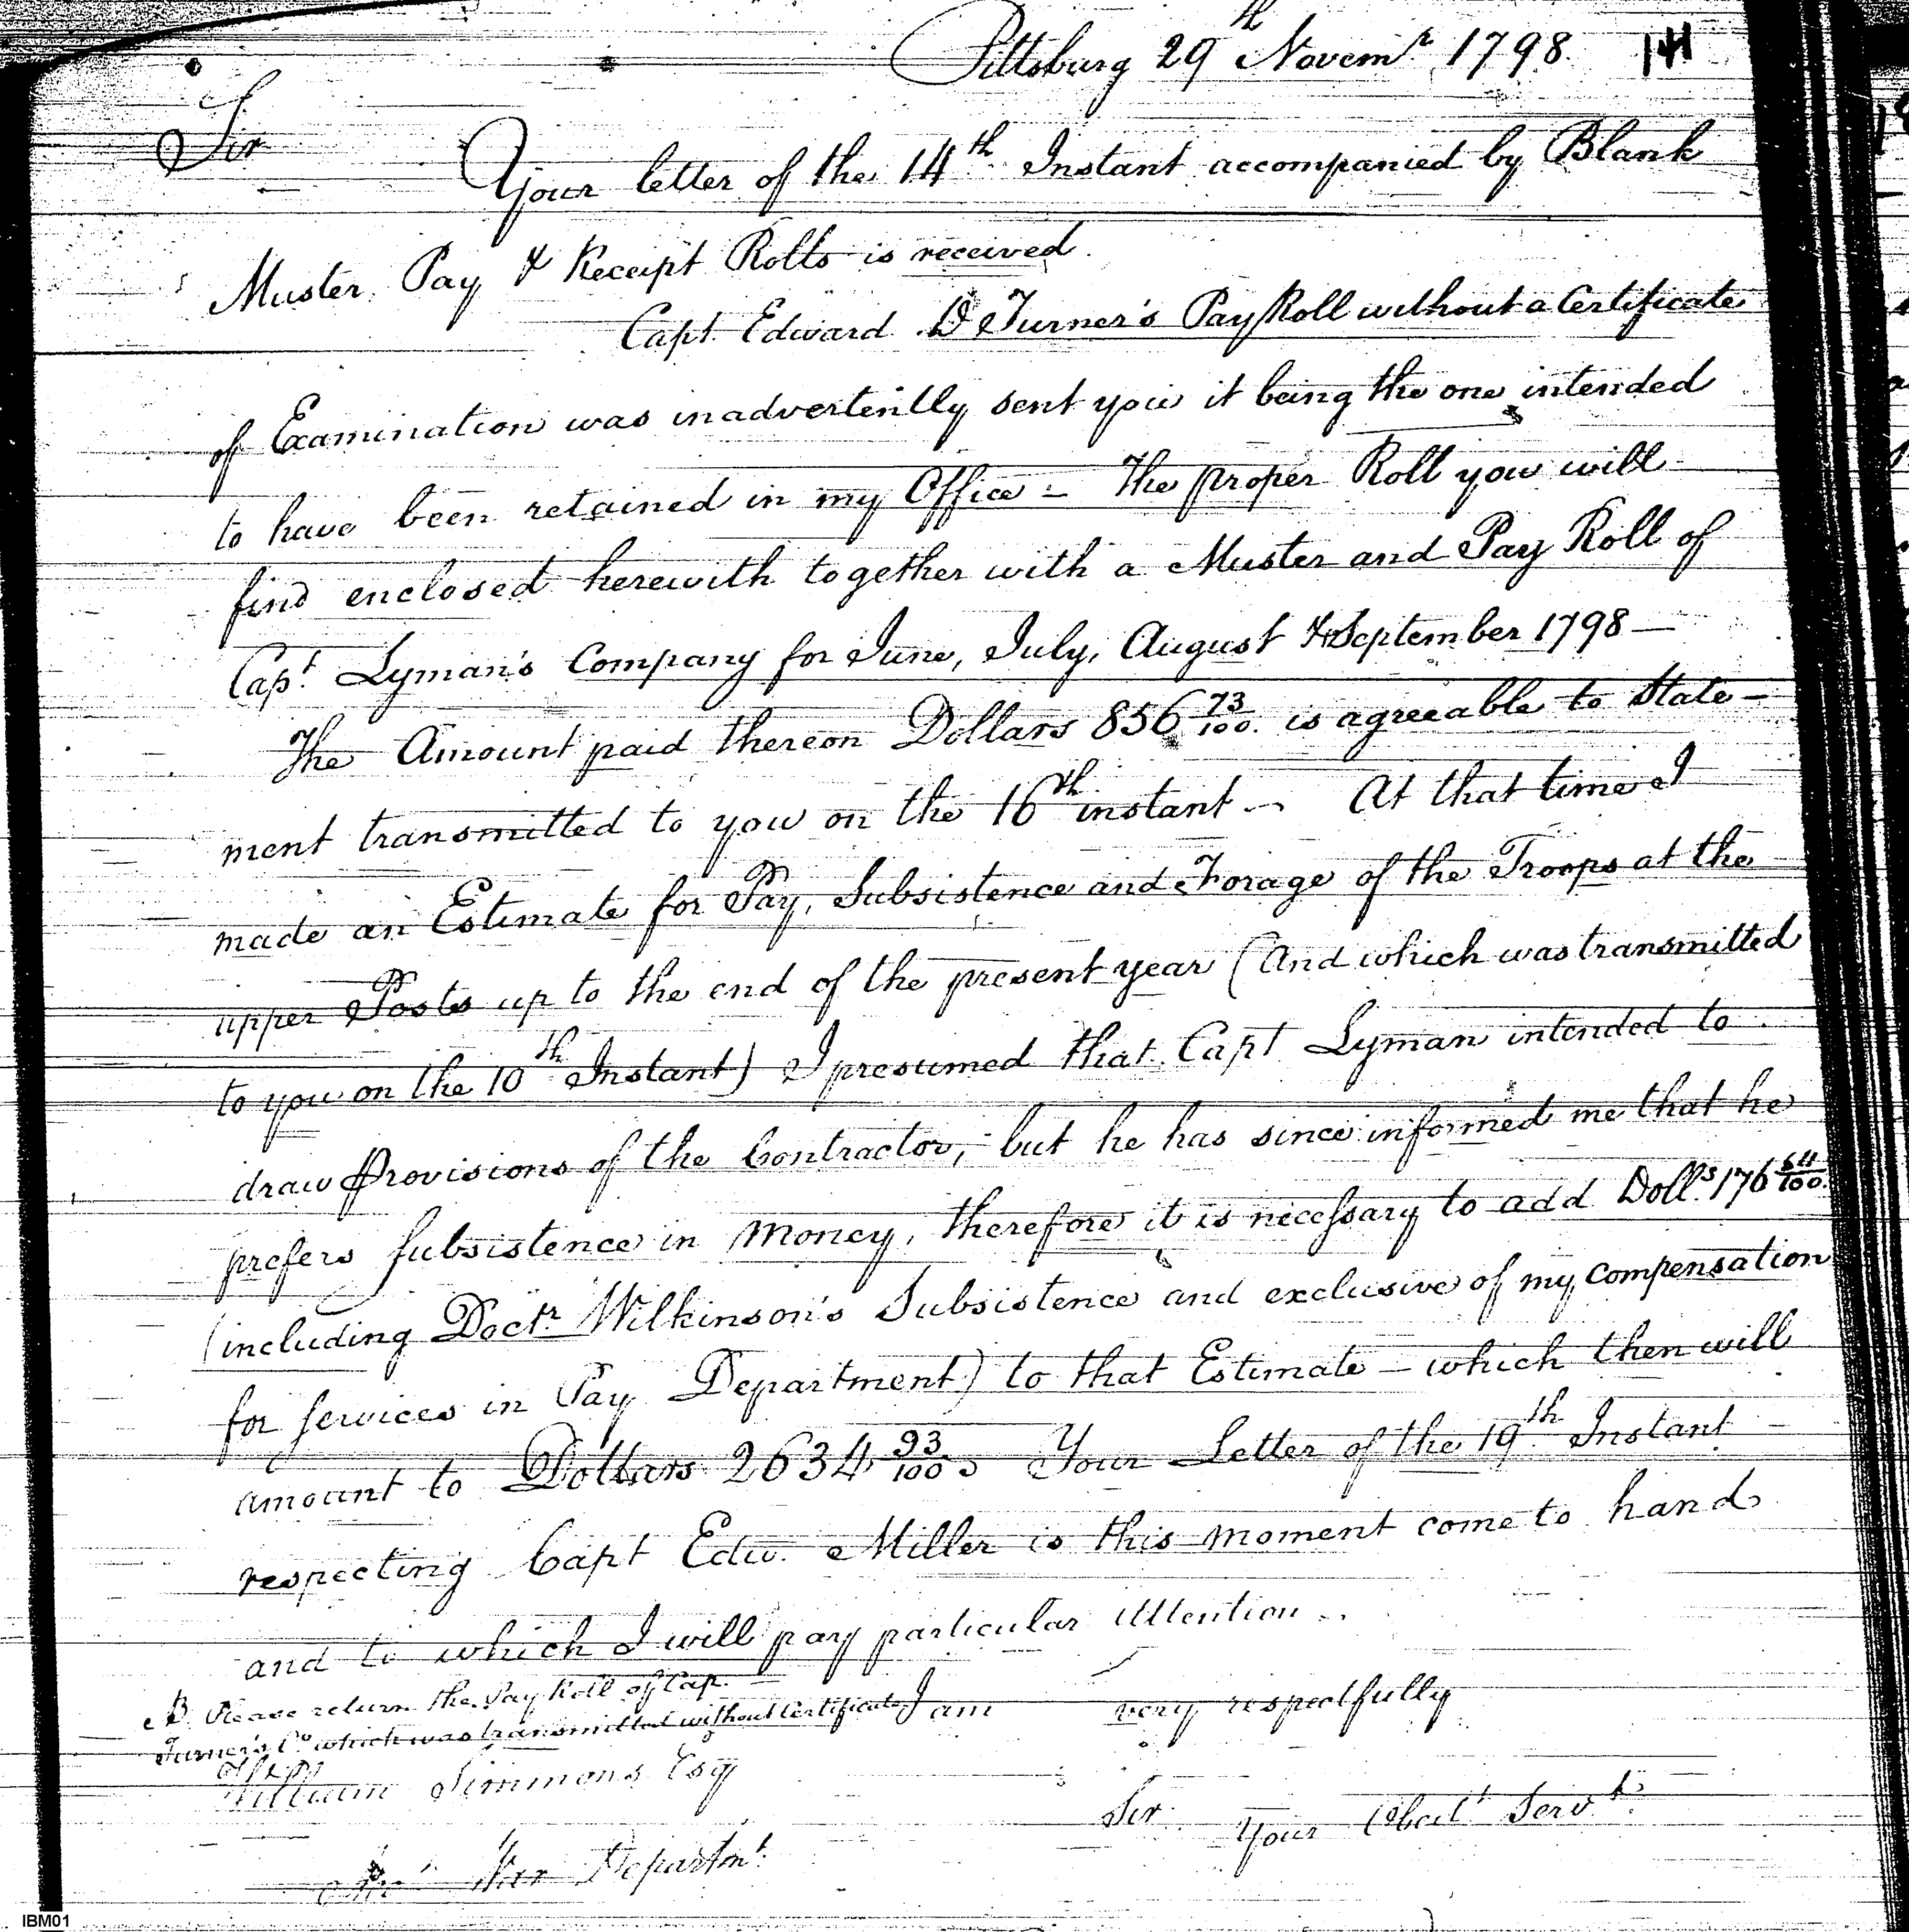 Pittsburg 29th Novemr 1798. 141
Sir
Your letter of the 14th Instant accompanied by Blank
Muster, Pay & Receipt Rolls is received.
Capt. Edward D Turner's Pay Roll without a Certificate
of Examination was inadvertently sent you it being the one intended
to have been retained in my Office - The proper Roll you will
find enclosed herewith together with a Muster and Pay Roll of
Capt. Lyman's Company for June, July, August & September 1798 —
The Amount paid thereon Dollars 856 73/100. is agreeable to State-
ment transmitted to you on the 16th instant - At that time I
made an Estimate for Pay, Subsistence and Forage of the Troops at the
upper Posts up to the end of the present year (And which was transmitted
to you on the 10th Instant) I presumed that Capt Lyman intended to
draw Provisions of the Contractor, but he has since informed me that he
prefers Subsistence in Money, therefore it is necessary to add Dolls. 176 64/100.
(including Doctr. Wilkinson's Subsistence and exclusive of my compensation
for services in Pay Department) to that Estimate — which then will
amount to Dollars 2634 93/100. Your Letter of the 19th Instant
respecting Capt Edw. Miller is this moment come to hand
and to which I will pay particular Attention.
NB. Please return the Pay Roll of Cap.
Turner's Co. which was transmitted without Certificate I am very respectfully
William Simmons Esq
Sir. Your Obedt. Servt.
War Departmt.
IBM01